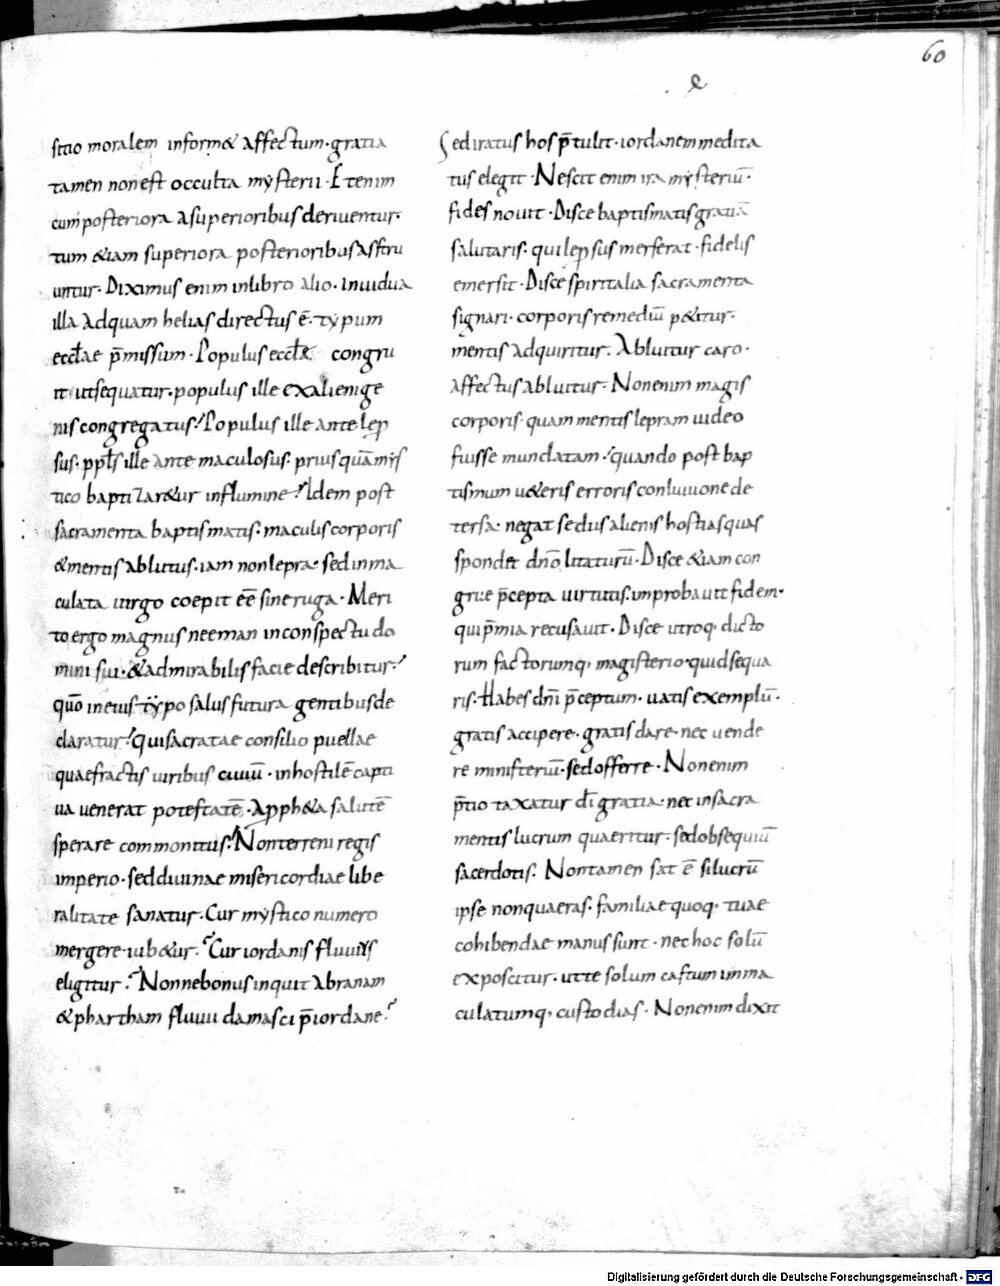 60
sitio moralem inform& affectum·gratia
tamen nonest occulta mysterii·Etenim
cumposteriora asuperioribusderiuentur·
tum &iam superiora posterioribusasstru
untur·Diximus enim inlibro alio·inuidua
illa adquam helias directus ē·typum
eccłae p̄missum·Populus eccłę congru
it utsequatur·populus ille exalienige
nis congregatus·Populus ille ante lep
sus·pplś ille ante maculosus·priusquā mys
tico baptizar&ur influmine·Idem post
sacramenta baptismatis·maculis corporis
&mentis ablutus·iam non lepra·sed inma
culata uirgo coepit eē sine ruga·Meri
to ergo magnus neeman inconspectu do
mini sui·&admirabilis facie describitur·
quō ineius typo salus futura gentibus de
claratur·Qui sacratae consilio puellae
quae fractis uiribus ciuiū·inhostilē capti
ua uenerat potestatē·a pph&a salutē
sperare commonitus·Nonterreni regis
imperio·sed diuinae misericordiae libe
ralitate sanatur·Cur mystico numero
mergere iub&ur·Cur iordanis fluuiis
eligitur·Nonne bonus inquit abranam
&phartham fluuii damasci p̄iordane·
Sed iratus hos p̄tulit·iordanem medita
tus elegit·Nescit enim ira mysteriū·
fides nouit·Disce baptismatis gratiā
salutaris·qui lepsus merserat·fidelis
emersit·Disce spiritalia sacramenta
signari·corporis remediū p&itur·
mentis adquiritur·Abluitur caro·
affectus abluitur·Non enim magis
corporis·quam mentis lepram uideo
fuisse mundatam·quando post bap
tismum u&eris erroris conluuione de
tersa·negat se dus alienis hostias quas
spondet dnō litaturū·Disce &iam con
grue p̄cepta uirtutis·improbauit fidem·
qui p̄mia recusauit·Disce utroq· dicto
rum factorumq· magisterio·quid sequa
ris·Habes dnī p̄ceptum·uatis exemplū·
gratis accipere·gratis dare·nec uende
re ministeriū·sed offerre·Non enim
p̄tio taxatur dī gratia·nec insacra
mentis lucrum quaeritur·sed obsequiū
sacerdotis·Non tamen sat ē si lucrū
ipse non quaeras·familiae quoq· tuae
cohibendae manus sunt·nec hoc solū
exposcitur·ut te solum castum imma
culatumq· custodias·Non enim dixit
Digitalisierung gefördert durch die Deutsche Forschungsgemeinschaft - DFG